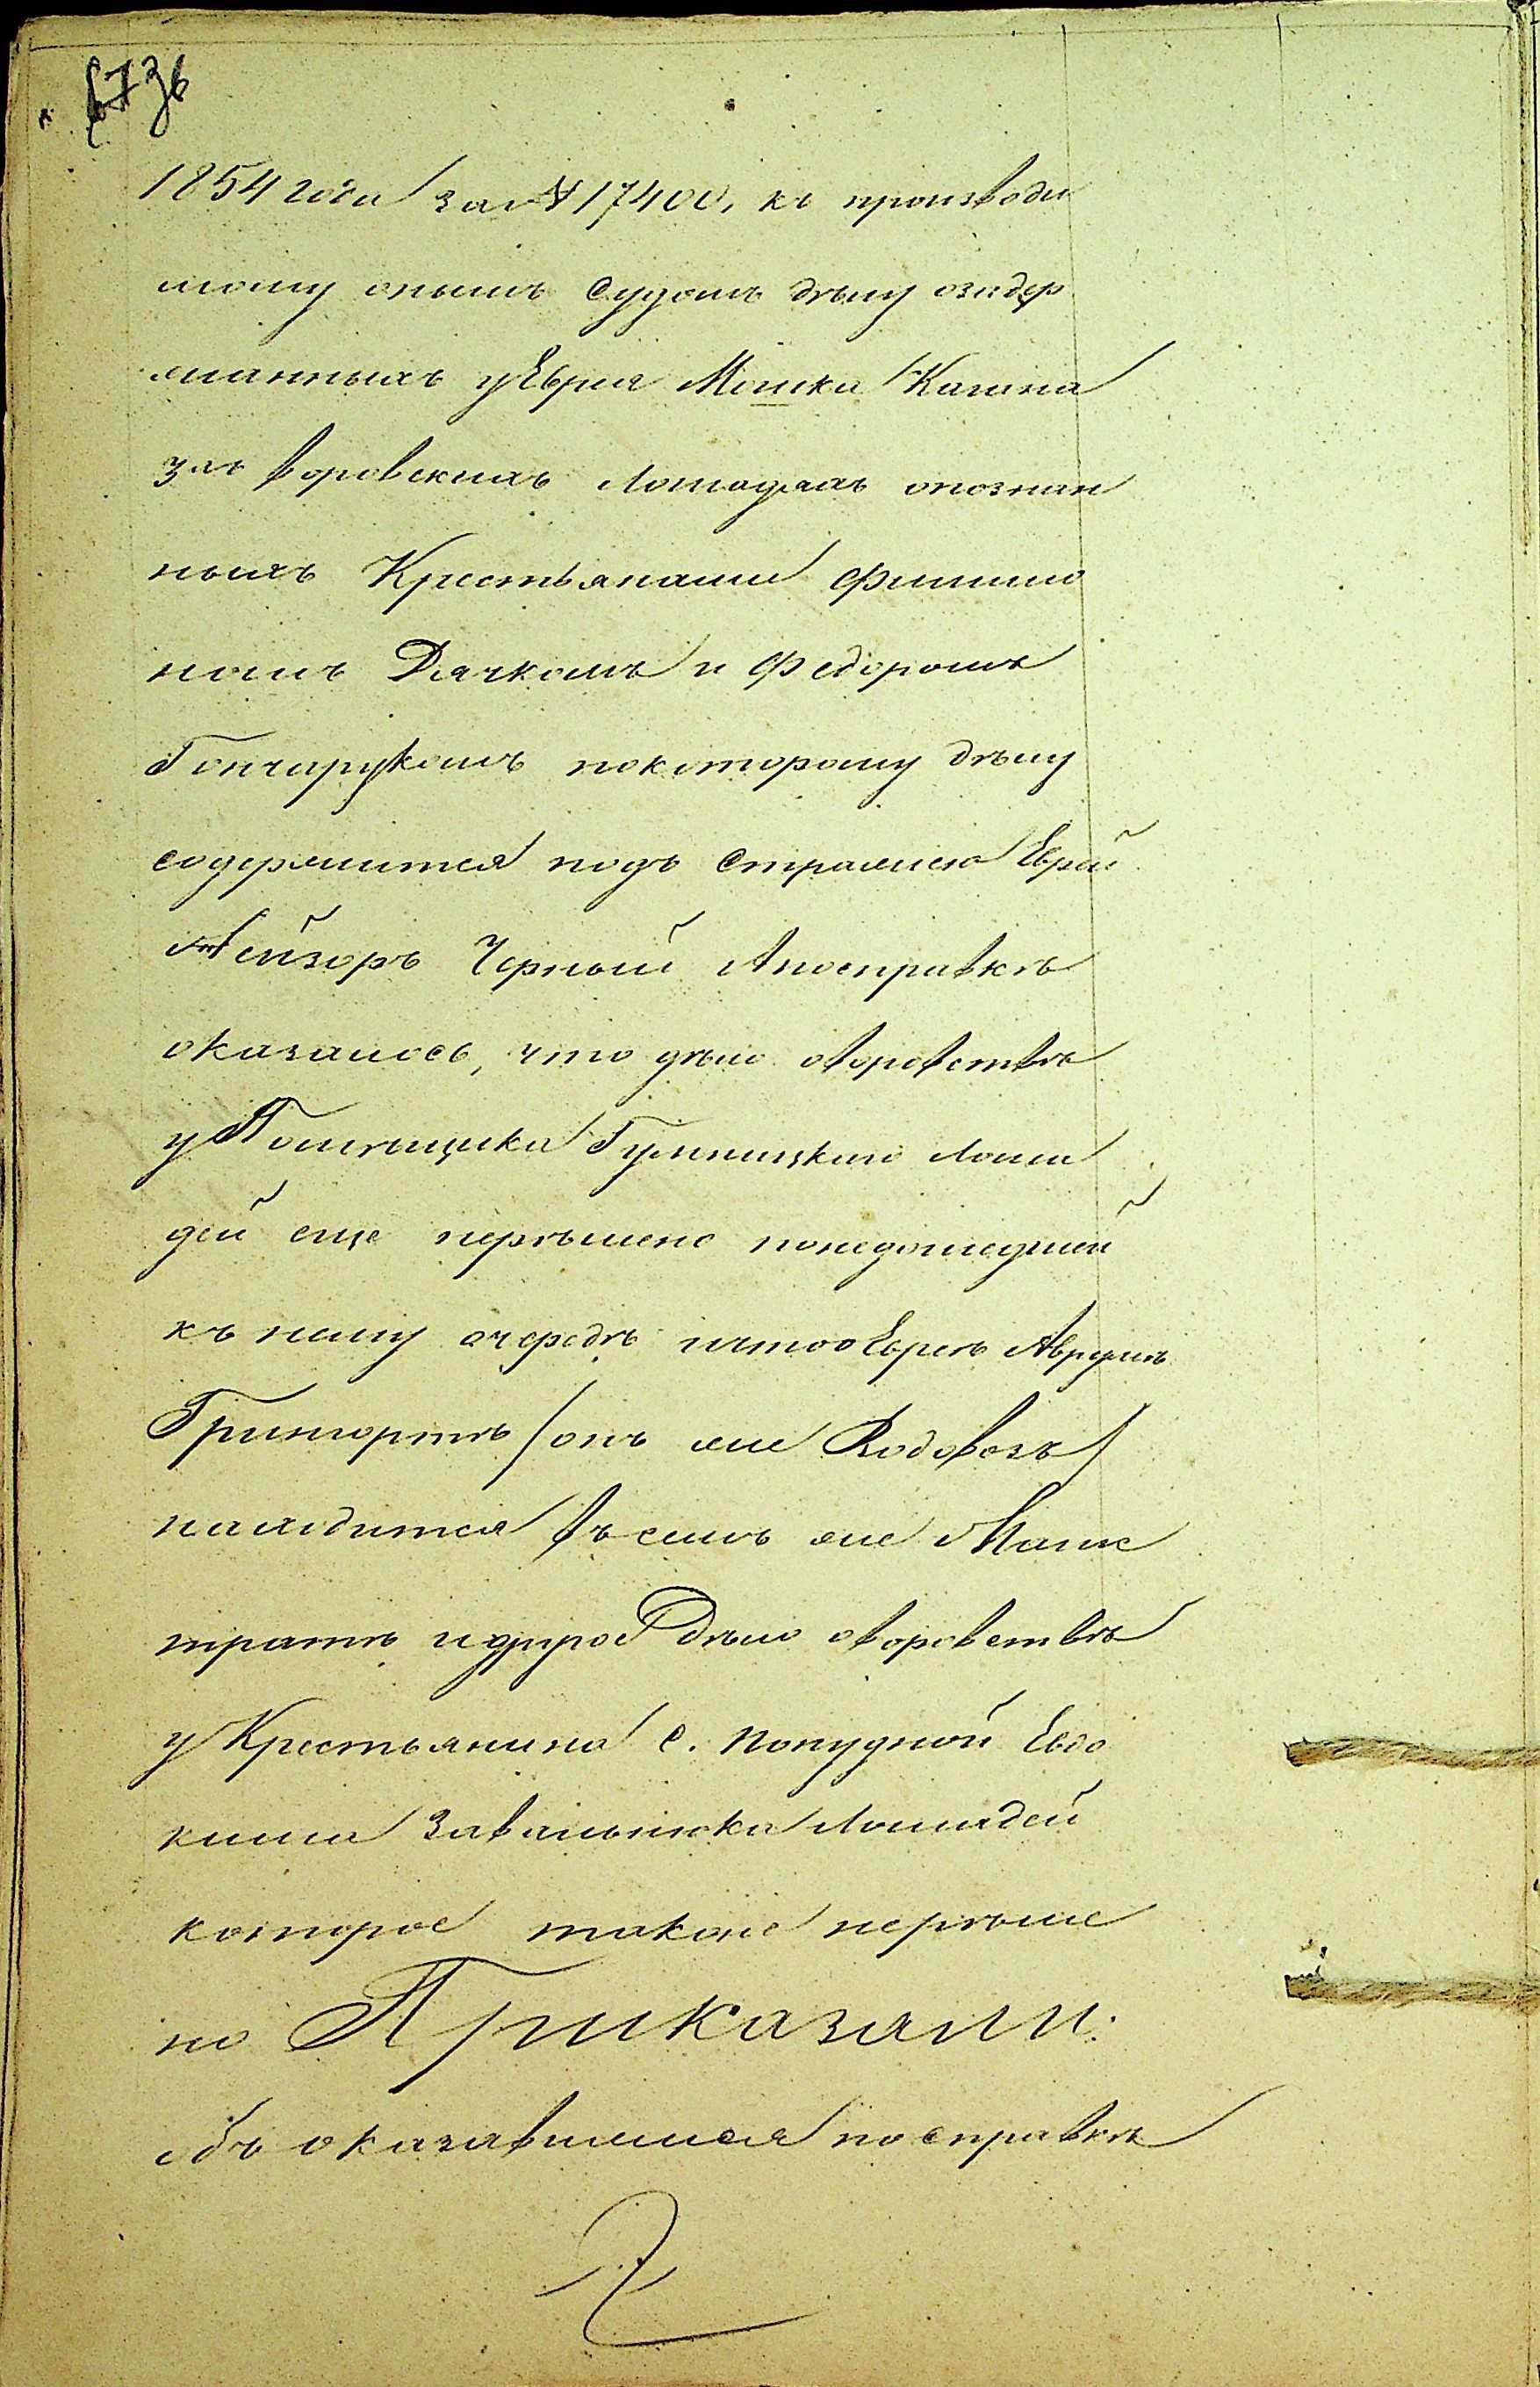 1854 года за № 17400, къ производи
мому онымъ Судомъ дѣлу озадер
жанныхъ у Еврея Мошка Кагана
3хъ воровскихъ Лошадяхъ опознан
ныхъ Крестьянами Филимо
номъ Дячкомъ и Федоромъ
Гончарукомъ покоторому дѣлу
содержится подъ Стражею Еврей
Лейзоръ Черный Апосправкѣ
оказалось, что дѣло оворовствѣ
у Помѣщика Гумницкаго Лоша
дей еще нерѣшено понедошедшей
къ нему очередѣ ичто о Евреѣ Аврумѣ
(онъ же Водовозъ)
находится въ семъ же Магис
тратѣ идругое Дѣло оворовствѣ
у Крестьянина с. Попудной Евдо
кима Завальнюка Лошадей
которое также нерѣше
но Приказали:
Объ оказавшемся посправкѣ